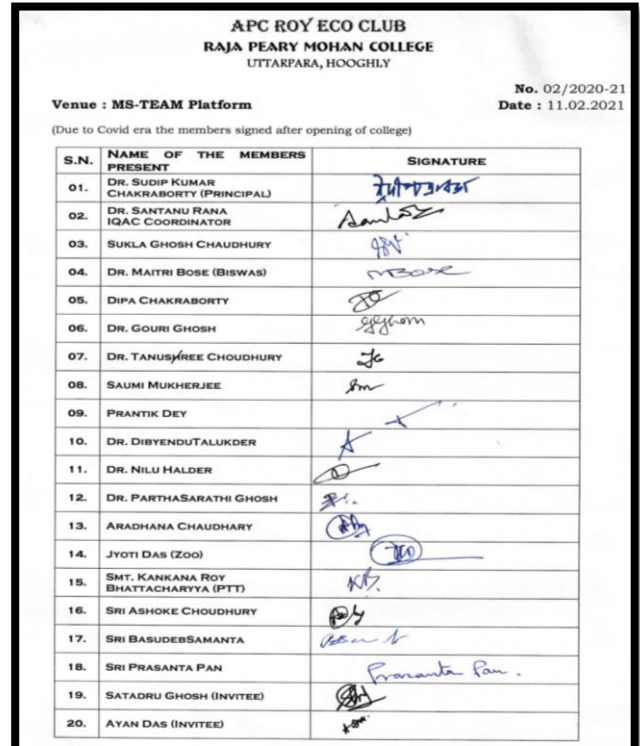 APC ROY ECO CLUB
RAJA PEARY MOHAN COLLEGE
UTTARPARA, HOOGHLY
No. 02/2020-21
Venue : MS-TEAM Platform Date : 11.02.2021
(Due to Covid era the members signed after opening of college)
S.N. NAME OF THE MEMBERS PRESENT SIGNATURE
01. DR. SUDIP KUMAR
CHAKRABORTY (PRINCIPAL)
02. DR. SANTANU RANA
IQAC COORDINATOR
03. SUKLA GHOSH CHAUDHURY
04. DR. MAITRI BOSE (BISWAS) MBose
05. DIPA CHAKRABORTY
06. DR. GOURI GHOSH
07. DR. TANUSHREE CHOUDHURY
08. SAUMI MUKHERJEE Sm
09. PRANTIK DEY
10. DR. DIBYENDUTALUKDER
11. DR. NILU HALDER
12. DR. PARTHASARATHI GHOSH
13. ARADHANA CHAUDHARY
14. JYOTI DAS (ZOO)
15. SMT. KANKANA ROY
BHATTACHARYYA (PTT)
16. SRI ASHOKE CHOUDHURY
17. SRI BASUDEBSAMANTA
18. SRI PRASANTA PAN Prasanta Pan.
19. SATADRU GHOSH (INVITEE)
20. AYAN DAS (INVITEE)